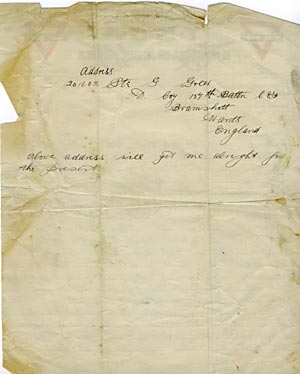 Address
Pte G
D. Coy 137th Battn C E F
Bramshott
Hants
England
above address will get me alright for
the present